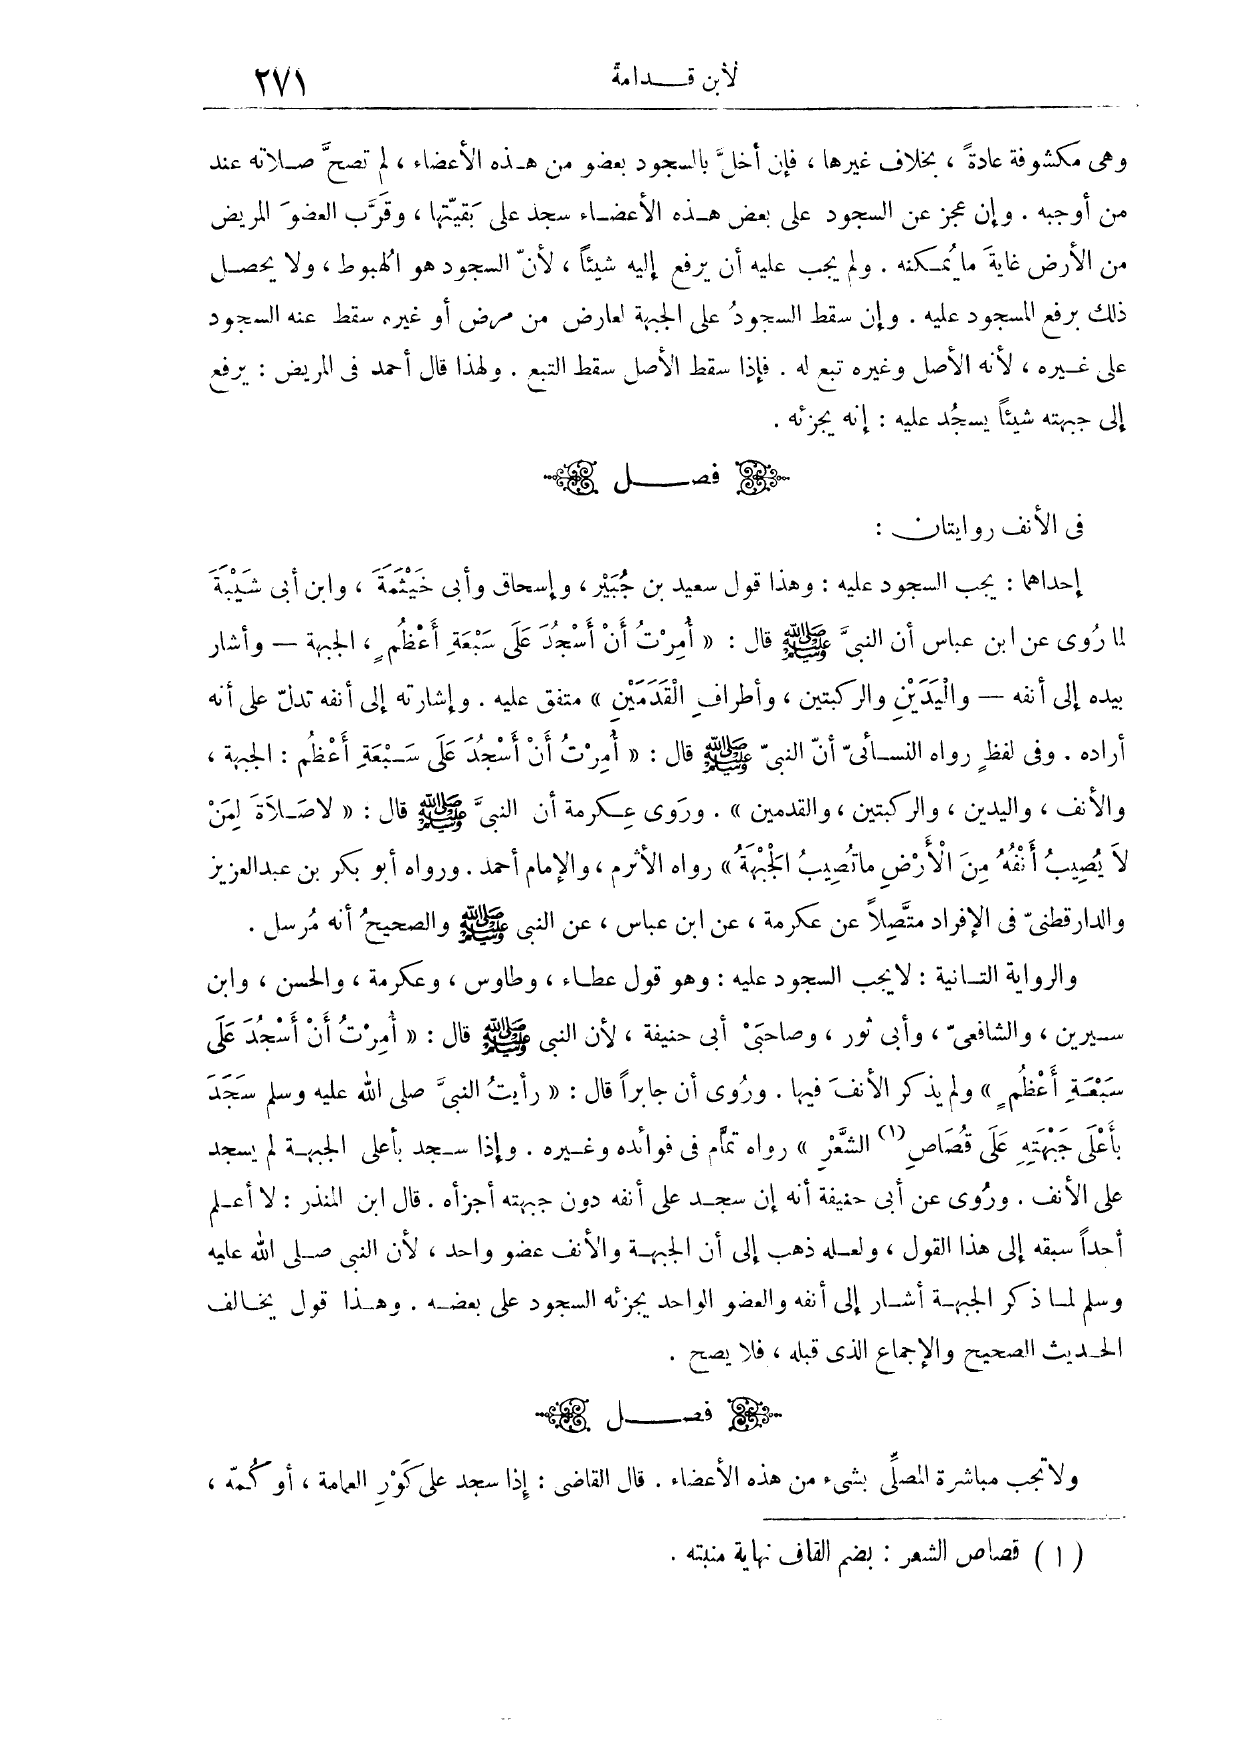 لابن قـدامة ٢٧١
وهى مكشوفة عادةً ، بخلاف غيرها ، فإن أخلَّ بالسجود بعضو من هـذه الأعضاء ، لم تصحَّ صـلاته عند
من أوجبه . وإن عجز عن السجود على بعض هـذه الأعضـاء سجد على بَقيّتها ، وقَرَّب العضوَ المريض
من الأرض غايةَ ما يُمـكنه . ولم يجب عليه أن يرفع إليه شيئاً ، لأنّ السجود هو الهبوط ، ولا يحصـل
ذلك برفع المسجود عليه . وإن سقط السجودُ على الجبهة لعارض من مرض أو غيره سقط عنه السجود
على غـيره ، لأنه الأصل وغيره تبع له . فإذا سقط الأصل سقط التبع . ولهذا قال أحمد فى المريض : يرفع
إلى جبهته شيئاً يسجُد عليه : إنه يجزئه .
فصـل
فى الأنف روايتان :
إحداهما : يجب السجود عليه : وهذا قول سعيد بن جُبَيْر ، وإسحاق وأبى خَيْثَمَةَ ، وابن أبى شَيْبَةَ
لما رُوى عن ابن عباس أن النبىَّ ﷺ قال : « أُمِرْتُ أَنْ أَسْجُدَ عَلَى سَبْعَةِ أَعْظُمٍ ، الجبهة — وأشار
بيده إلى أنفه — والْيَدَيْنِ والركبتين ، وأطرافِ الْقَدَمَيْنِ » متفق عليه . وإشارته إلى أنفه تدلّ على أنه
أراده . وفى لفظٍ رواه النسـائىّ أنّ النبىّ ﷺ قال : « أُمِرْتُ أَنْ أَسْجُدَ عَلَى سَـبْعَةِ أَعْظُم : الجبهة ،
والأنف ، واليدين ، والركبتين ، والقدمين » . ورَوى عِـكرمة أن النبىَّ ﷺ قال : « لاصَـلاَةَ لِمَنْ
لاَ يُصِيبُ أَنْفُهُ مِنَ الْأَرْضِ ماتُصِيبُ الْجَبْهَةُ » رواه الأثرم ، والإمام أحمد . ورواه أبو بكر بن عبدالعزيز
والدارقطنىّ فى الإفراد متَّصِلاً عن عكرمة ، عن ابن عباس ، عن النبى ﷺ والصحيحُ أنه مُرسل .
والرواية الثـانية : لايجب السجود عليه : وهو قول عطـاء ، وطاوس ، وعكرمة ، والحسن ، وابن
سـيرين ، والشافعىّ ، وأبى ثور ، وصاحبَىْ أبى حنيفة ، لأن النبى ﷺ قال : « أُمِرْتُ أَنْ أَسْجُدَ عَلَى
سَبْعَةِ أَعْظُمٍ » ولم يذكر الأنفَ فيها . ورُوى أن جابراً قال : « رأيتُ النبىَّ صلى الله عليه وسلم سَجَدَ
بأَعْلَى جَبْهَتِهِ عَلَى قُصَاصِ (١) الشَّعْرِ » رواه تمَّام فى فوائده وغـيره . وإذا سـجد بأعلى الجبهـة لم يسجد
على الأنف . ورُوى عن أبى حنيفة أنه إن سجـد على أنفه دون جبهته أجزأه . قال ابن المنذر : لا أعـلم
أحداً سبقه إلى هذا القول ، ولعـله ذهب إلى أن الجبهـة والأنف عضو واحد ، لأن النبى صـلى الله عليه
وسلم لمـا ذكر الجبهـة أشـار إلى أنفه والعضو الواحد يجزئه السجود على بعضـه . وهـذا قول يخـالف
الحـديث الصحيح والإجماع الذى قبله ، فلا يصح .
فصـل
ولاتجب مباشرة المصلِّى بشىء من هذه الأعضاء . قال القاضى : إذا سجد على كَوْرِ العمامة ، أو كُمّه ،
(١) قصاص الشعر : بضم القاف نهاية منبته .